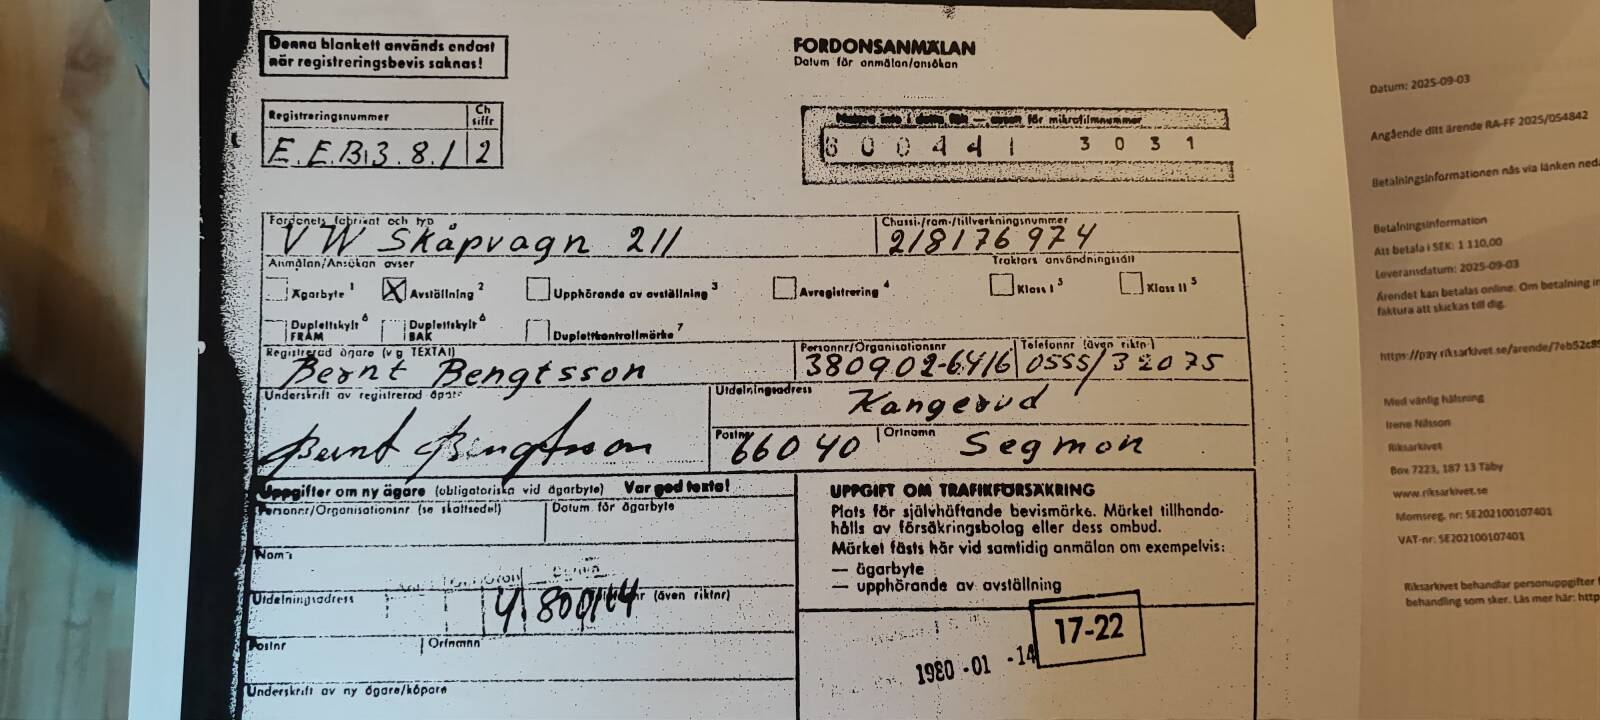 Denna blankett används endast
när registreringsbevis saknas!
FORDONSANMÄLAN
Datum för anmälan/ansökan
Registreringsnummer
Ch
siffr
E.E.B.3.8.1 2
för mikrofilmnummer
600441 3031
Fordonets fabrikat och typ
VW Skåpvagn 211
Chassi-/ram-/tillverkningsnummer
218176974
Anmälan/Ansökan avser
Traktors användningssätt
Ägarbyte 1
X Avställning 2
Upphörande av avställning 3
Avregistrering 4
Klass I 5
Klass II 5
Duplettskylt 6
FRAM
Duplettskylt 6
BAK
Duplettkontrollmärke 7
Registrerad ägare (v g TEXTA!)
Bernt Bengtsson
Personnr/Organisationsnr
380902-6416
Telefonnr (även riktnr)
0555/32075
Underskrift av registrerad ägare
Bernt Bengtsson
Utdelningsadress
Kangerud
Postnr
66040
Ortnamn
Segmon
Uppgifter om ny ägare (obligatoriska vid ägarbyte) Var god texta!
Personnr/Organisationsnr (se skattsedel)
Datum för ägarbyte
Namn
Utdelningsadress
4 800114
nr (även riktnr)
Postnr
Ortnamn
Underskrift av ny ägare/köpare
UPPGIFT OM TRAFIKFÖRSÄKRING
Plats för självhäftande bevismärke. Märket tillhanda-
hålls av försäkringsbolag eller dess ombud.
Märket fästs här vid samtidig anmälan om exempelvis:
— ägarbyte
— upphörande av avställning
17-22
1980-01-14
Datum: 2025-09-03
Angående ditt ärende RA-FF 2025/054842
Betalningsinformationen nås via länken
Betalningsinformation
Att betala i SEK: 1 110,00
Leveransdatum: 2025-09-03
Ärendet kan betalas online. Om betalning
faktura att skickas till dig.
https://pay.riksarkivet.se/arende/7eb52c
Med vänlig hälsning
Irene Nilsson
Riksarkivet
Box 7223, 187 13 Täby
www.riksarkivet.se
Momsreg. nr: SE202100107401
VAT-nr: SE202100107401
Riksarkivet behandlar personuppgifter
behandling som sker. Läs mer här: